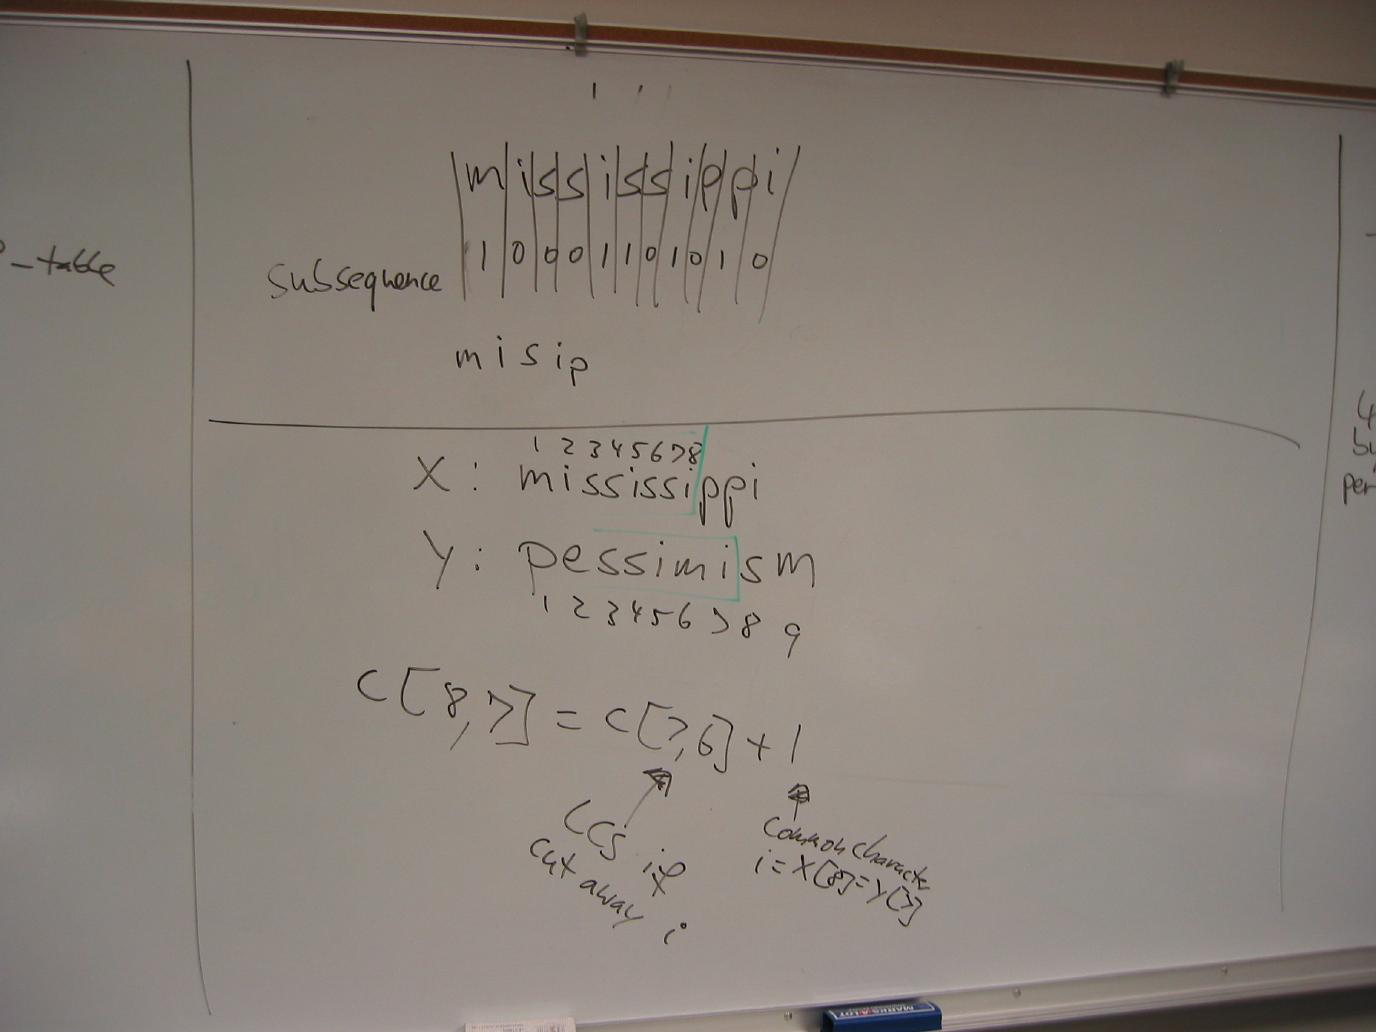 _table
m i s s i s s i p p i
subsequence 1 0 0 0 1 1 0 1 0 1 0
m i s i p
1 2 3 4 5 6 7 8
X : mississippi
Y : pessimism
1 2 3 4 5 6 7 8 9
c[8,7] = c[7,6] + 1
LCS if
cut away i
common character
i = X[8] = Y[7]
per
MARKS-A-LOT